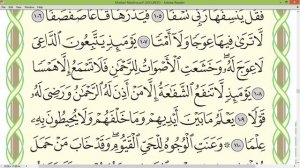 فَقُلْ يَنسِفُهَا رَبِّى نَسْفًا ١٠٥ فَيَذَرُهَا قَاعًا صَفْصَفًا ١٠٦
لَّا تَرَىٰ فِيهَا عِوَجًا وَلَآ أَمْتًا ١٠٧ يَوْمَئِذٍ يَتَّبِعُونَ ٱلدَّاعِىَ
لَا عِوَجَ لَهُۥ وَخَشَعَتِ ٱلْأَصْوَاتُ لِلرَّحْمَٰنِ فَلَا تَسْمَعُ إِلَّا هَمْسًا
١٠٨ يَوْمَئِذٍ لَّا تَنفَعُ ٱلشَّفَٰعَةُ إِلَّا مَنْ أَذِنَ لَهُ ٱلرَّحْمَٰنُ وَرَضِىَ لَهُۥ
قَوْلًا ١٠٩ يَعْلَمُ مَا بَيْنَ أَيْدِيهِمْ وَمَا خَلْفَهُمْ وَلَا يُحِيطُونَ بِهِۦ
عِلْمًا ١١٠ وَعَنَتِ ٱلْوُجُوهُ لِلْحَىِّ ٱلْقَيُّومِ وَقَدْ خَابَ مَنْ حَمَلَ